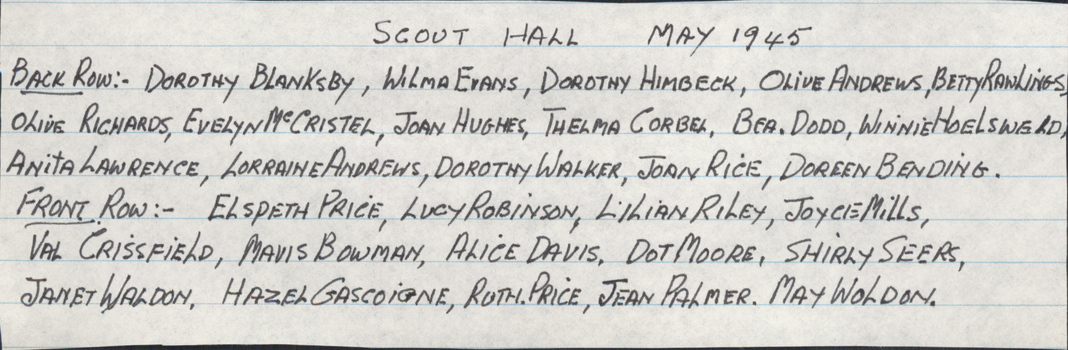 SCOUT HALL MAY 1945
BACK ROW:- DOROTHY BLANKSBY, WILMA EVANS, DOROTHY HIMBECK, OLIVE ANDREWS, BETTY RAWLINGS,
OLIVE RICHARDS, EVELYN McCRISTEL, JOAN HUGHES, THELMA CORBEL, BEA. DODD, WINNIE HOELSWELD,
ANITA LAWRENCE, LORRAINE ANDREWS, DOROTHY WALKER, JOAN RICE, DOREEN BENDING.
FRONT ROW:- ELSPETH PRICE, LUCY ROBINSON, LILIAN RILEY, JOYCE MILLS,
VAL CRISSFIELD, MAVIS BOWMAN, ALICE DAVIS, DOT MOORE, SHIRLY SEERS,
JANET WALDON, HAZEL GASCOIGNE, RUTH. PRICE, JEAN PALMER. MAY WOLDON.